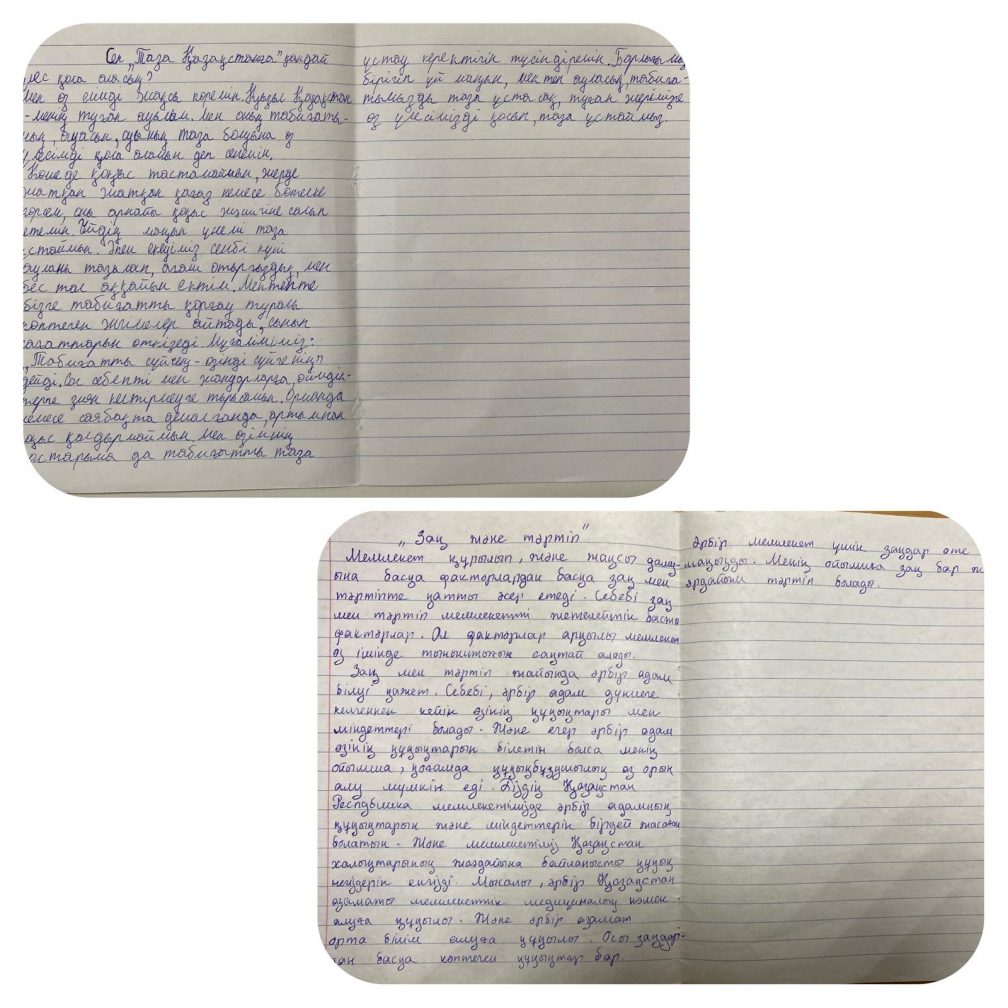 Сен „Таза Қазақстанға" қандай
үлес қоса аласың?
Мен өз елімді жақсы көремін. Қызыл Қазақстан
-менің туған ауылым. Мен оның табиғаты-
ның, ауасын, суының таза болуына өз
үлесімді қоса аламын деп сенемін.
Көшеде қоқыс тастамаймын, жерде
жатқан жатқан қағаз немесе бөтелке
көрсем, оны арнайы қоқыс жәшігіне салып
кетемін. Үйдің маңын үнемі таза
ұстаймын. Әкем екеуіміз сенбі күні
ауланы тазалап, ағаш отырғыздық, мен
бес тал аққайың ектім. Мектепте
бізге табиғатты қорғау туралы
көптеген әңгімелер айтады, сынып
сағаттарын өткізеді. Мұғаліміміз:
„Табиғатты сүйсең - өзіңді сүйгенің"
дейді. Сол себепті мен жандарларға, өсімдік-
терге зиян келтірмеуге тырысамын. Орманда
немесе саябақта демалғанда, артымнан
қоқыс қалдырмаймын. Мен өзімнің
достарыма да табиғатты таза
ұстау керектігін түсіндіремін. Барлығымыз
бірігіп үй маңын, мектеп ауласын, табиға-
тымызды таза ұстасақ, туған жерімізге
өз үлесімізді қосып, таза ұстаймыз.
„Заң және тәртіп"
Мемлекет құрылып, және жақсы даму-
ына басқа факторлардан басқа заң мен
тәртіпте қатты әсер етеді. Себебі заң
мен тәртіп мемлекетті жетелейтін басты
факторлар. Ол факторлар арқылы мемлекет
өз ішінде тыныштығын сақтай алады.
Заң мен тәртіп жайында әрбір адам
білуі қажет. Себебі, әрбір адам дүниеге
келгеннен кейін өзінің құқықтары мен
міндеттері болады. Және егер әрбір адам
өзінің құқықтарын білетін болса менің
ойымша, қоғамда құқықбұзушылық өз орын
алу мүмкін еді. Біздің Қазақстан
Респубышка мемлекетімізде әрбір адамның
құқықтарын және міндеттерін бірдей жасаған
болатын. Және мемлекетіміз Қазақстан
халықтарының жағдайына байланысты құқық
негіздерін енгізді. Мысалы, әрбір Қазақстан
азаматы мемлекеттік медициналық көмек
алуға құқылы. Және әрбір азамат
орта білім алуға құқылы. Осы заңдар-
дан басқа көптеген құқықтар бар.
Әрбір мемлекет үшін заңдар өте
маңызды. Менің ойымша заң бар ж
әрдайым тәртіп болады.